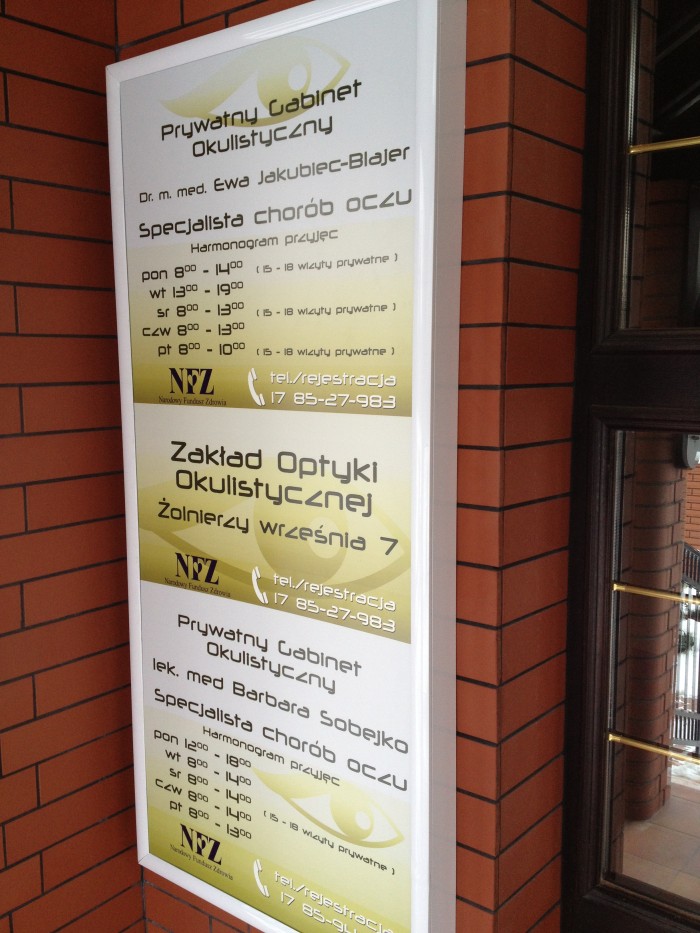 Prywatny Gabinet
Okulistyczny
Dr. m. med. Ewa Jakubiec-Blajer
Specjalista chorób oczu
Harmonogram przyjęc
pon 8⁰⁰ - 14⁰⁰ ( 15 - 18 wizyty prywatne )
wt 13⁰⁰ - 19⁰⁰
sr 8⁰⁰ - 13⁰⁰ ( 15 - 18 wizyty prywatne )
czw 8⁰⁰ - 13⁰⁰
pt 8⁰⁰ - 10⁰⁰ ( 15 - 18 wizyty prywatne )
NFZ
Narodowy Fundusz Zdrowia
tel./rejestracja
17 85-27-983
Zakład Optyki
Okulistycznej
Żolnierzy września 7
NFZ
Narodowy Fundusz Zdrowia
tel./rejestracja
17 85-27-983
Prywatny Gabinet
Okulistyczny
lek. med Barbara Sobejko
Specjalista chorób oczu
Harmonogram przyjęc
pon 12⁰⁰ - 18⁰⁰
wt 8⁰⁰ - 14⁰⁰
sr 8⁰⁰ - 14⁰⁰
czw 8⁰⁰ - 14⁰⁰ ( 15 - 18 wizyty prywatne )
pt 8⁰⁰ - 13⁰⁰
NFZ
Narodowy Fundusz Zdrowia
tel./rejestracja
17